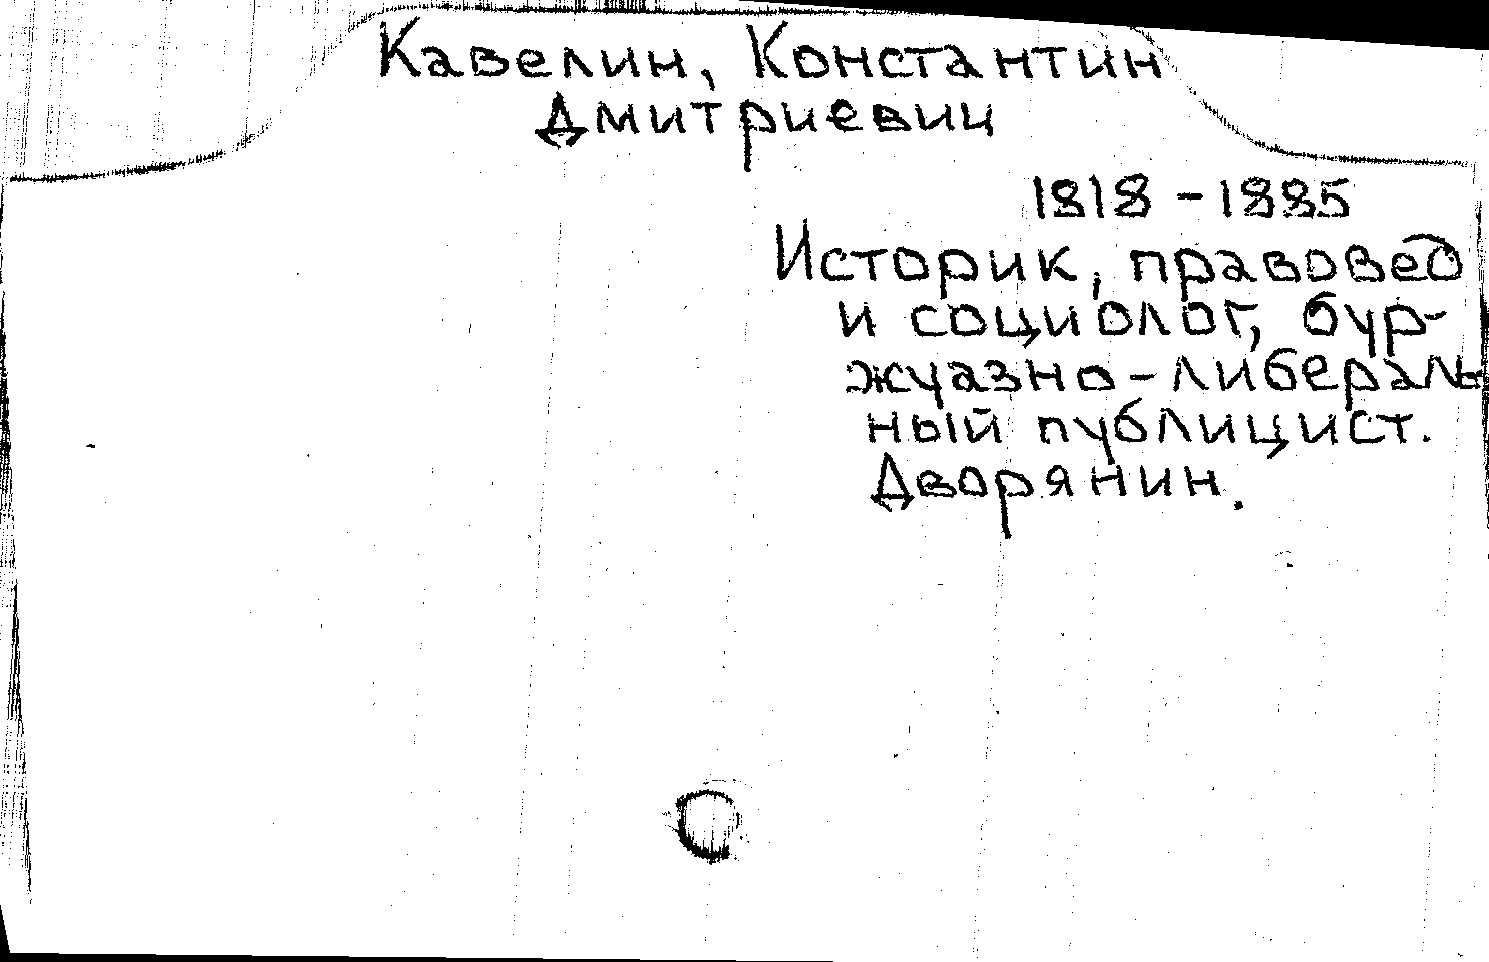 Кавелин, Константин
Дмитриевич
1818 - 1885
Историк, правовед
и социолог, бур-
жуазно-либераль-
ный публицист.
Дворянин.